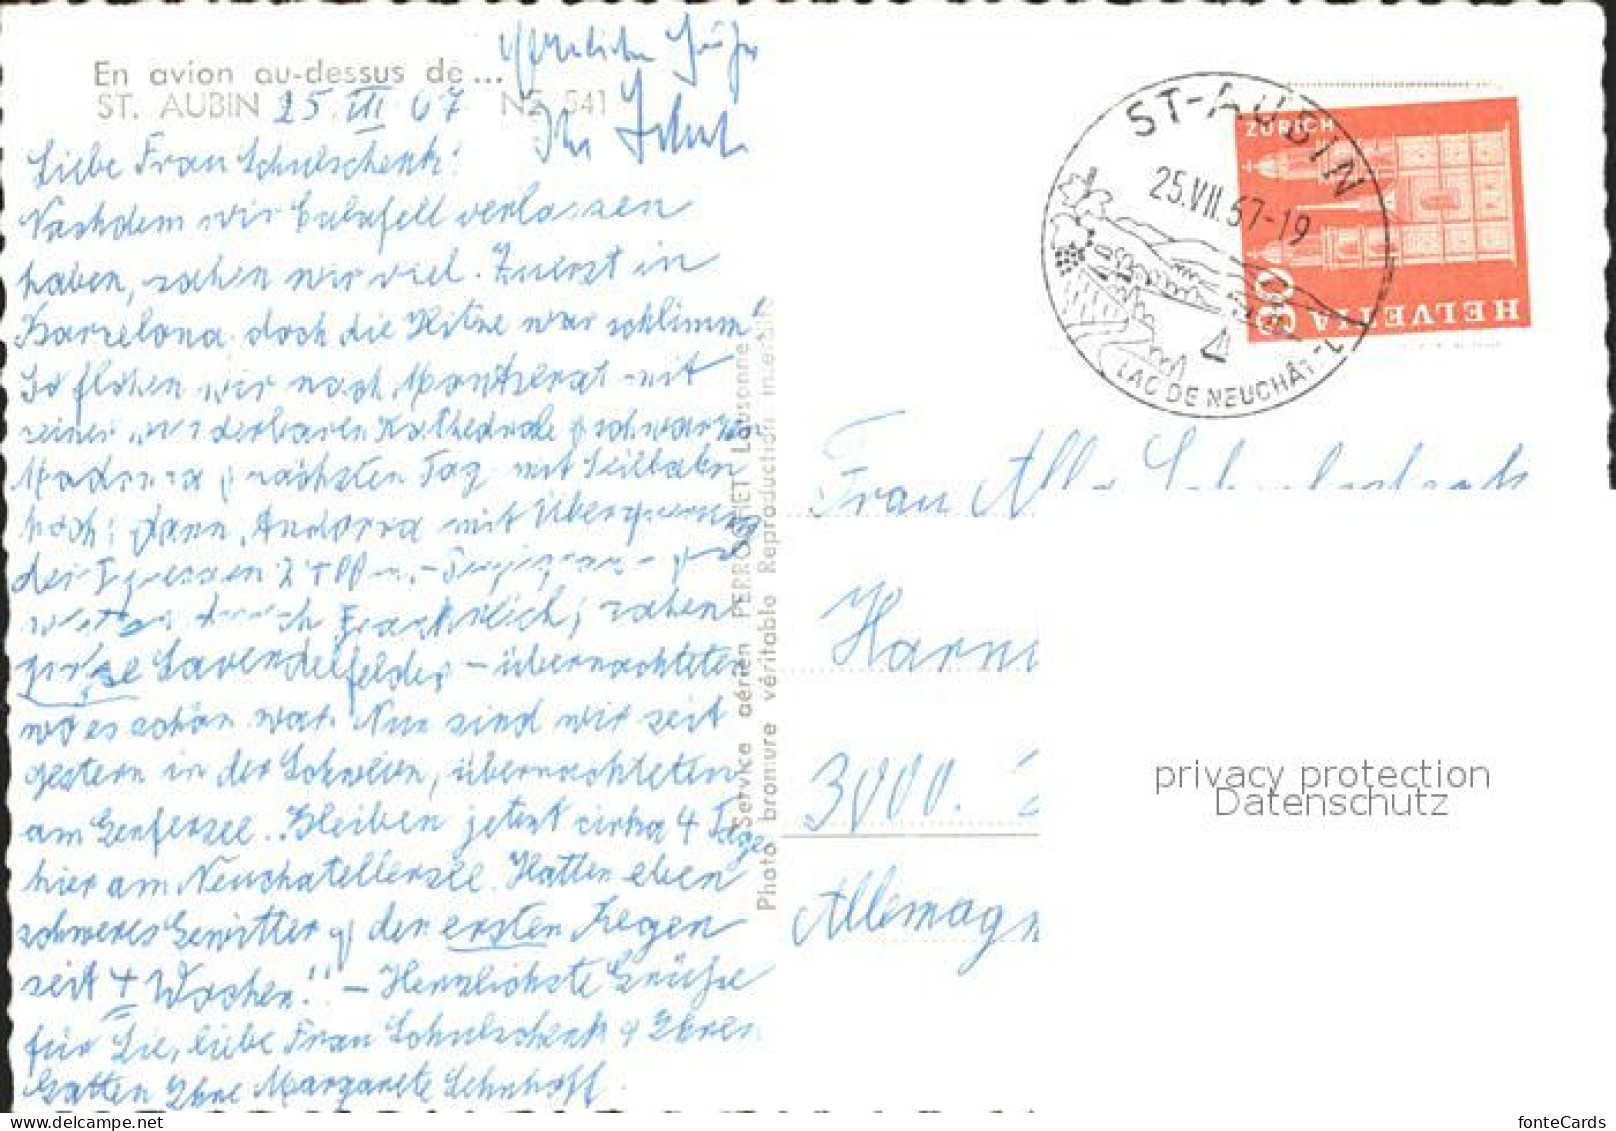 En avion au-dessus de...
ST. AUBIN 25. VII 67 N2 541
Herzliche Grüße
Ihr
Liebe Frau Schulschenk!
Nachdem wir Calafell verlassen
haben, sahen wir viel. Zuerst in
Barzelona, doch die Hitze war schlimm!
So flohen wir nach Montserrat mit
seiner wunderbaren Kathedrale & schwarzen
Madonna & nächsten Tag mit Seilbahn
hoch; dann Andorra mit Überquerung
der
weiter durch Frankreich; sahen
große Lavendelfelder - übernachteten
wo es schön war. Nun sind wir seit
gestern in der Schweiz, übernachteten
am Genfersee. Bleiben jetzt cirka 4 Tage
hier am Neuchatellersee. Hatten eben
schweres Gewitter & den ersten Regen
seit 4 Wochen!! - Herzlichste Grüße
für Sie, liebe Frau Schulschenk & Ihren
Gatten Ihre Margarete Lehnhoff.
Service aérien PERROCHET Lausanne
Photo bromure véritable Reproduction interdite
ST-AUBIN
25.VII.67-19
LAC DE NEUCHÂT-
ZÜRICH
HELVETIA
Frau
3000.
Allemagn
privacy protection
Datenschutz
fonteCards